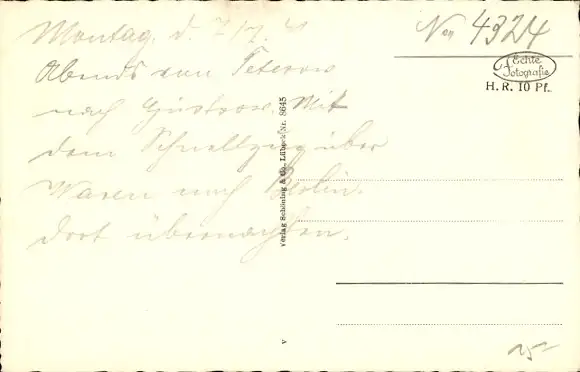 Montag, d. 7/7. 41
Abends von Teterow
nach Güstrow. Mit
dem Schnellzug über
Waren nach Berlin.
Dort übernachten.
No 4324
Echte
Fotografie
H. R. 10 Pf.
Verlag Schöning & Co., Lübeck
Nr. 8645
V
15-